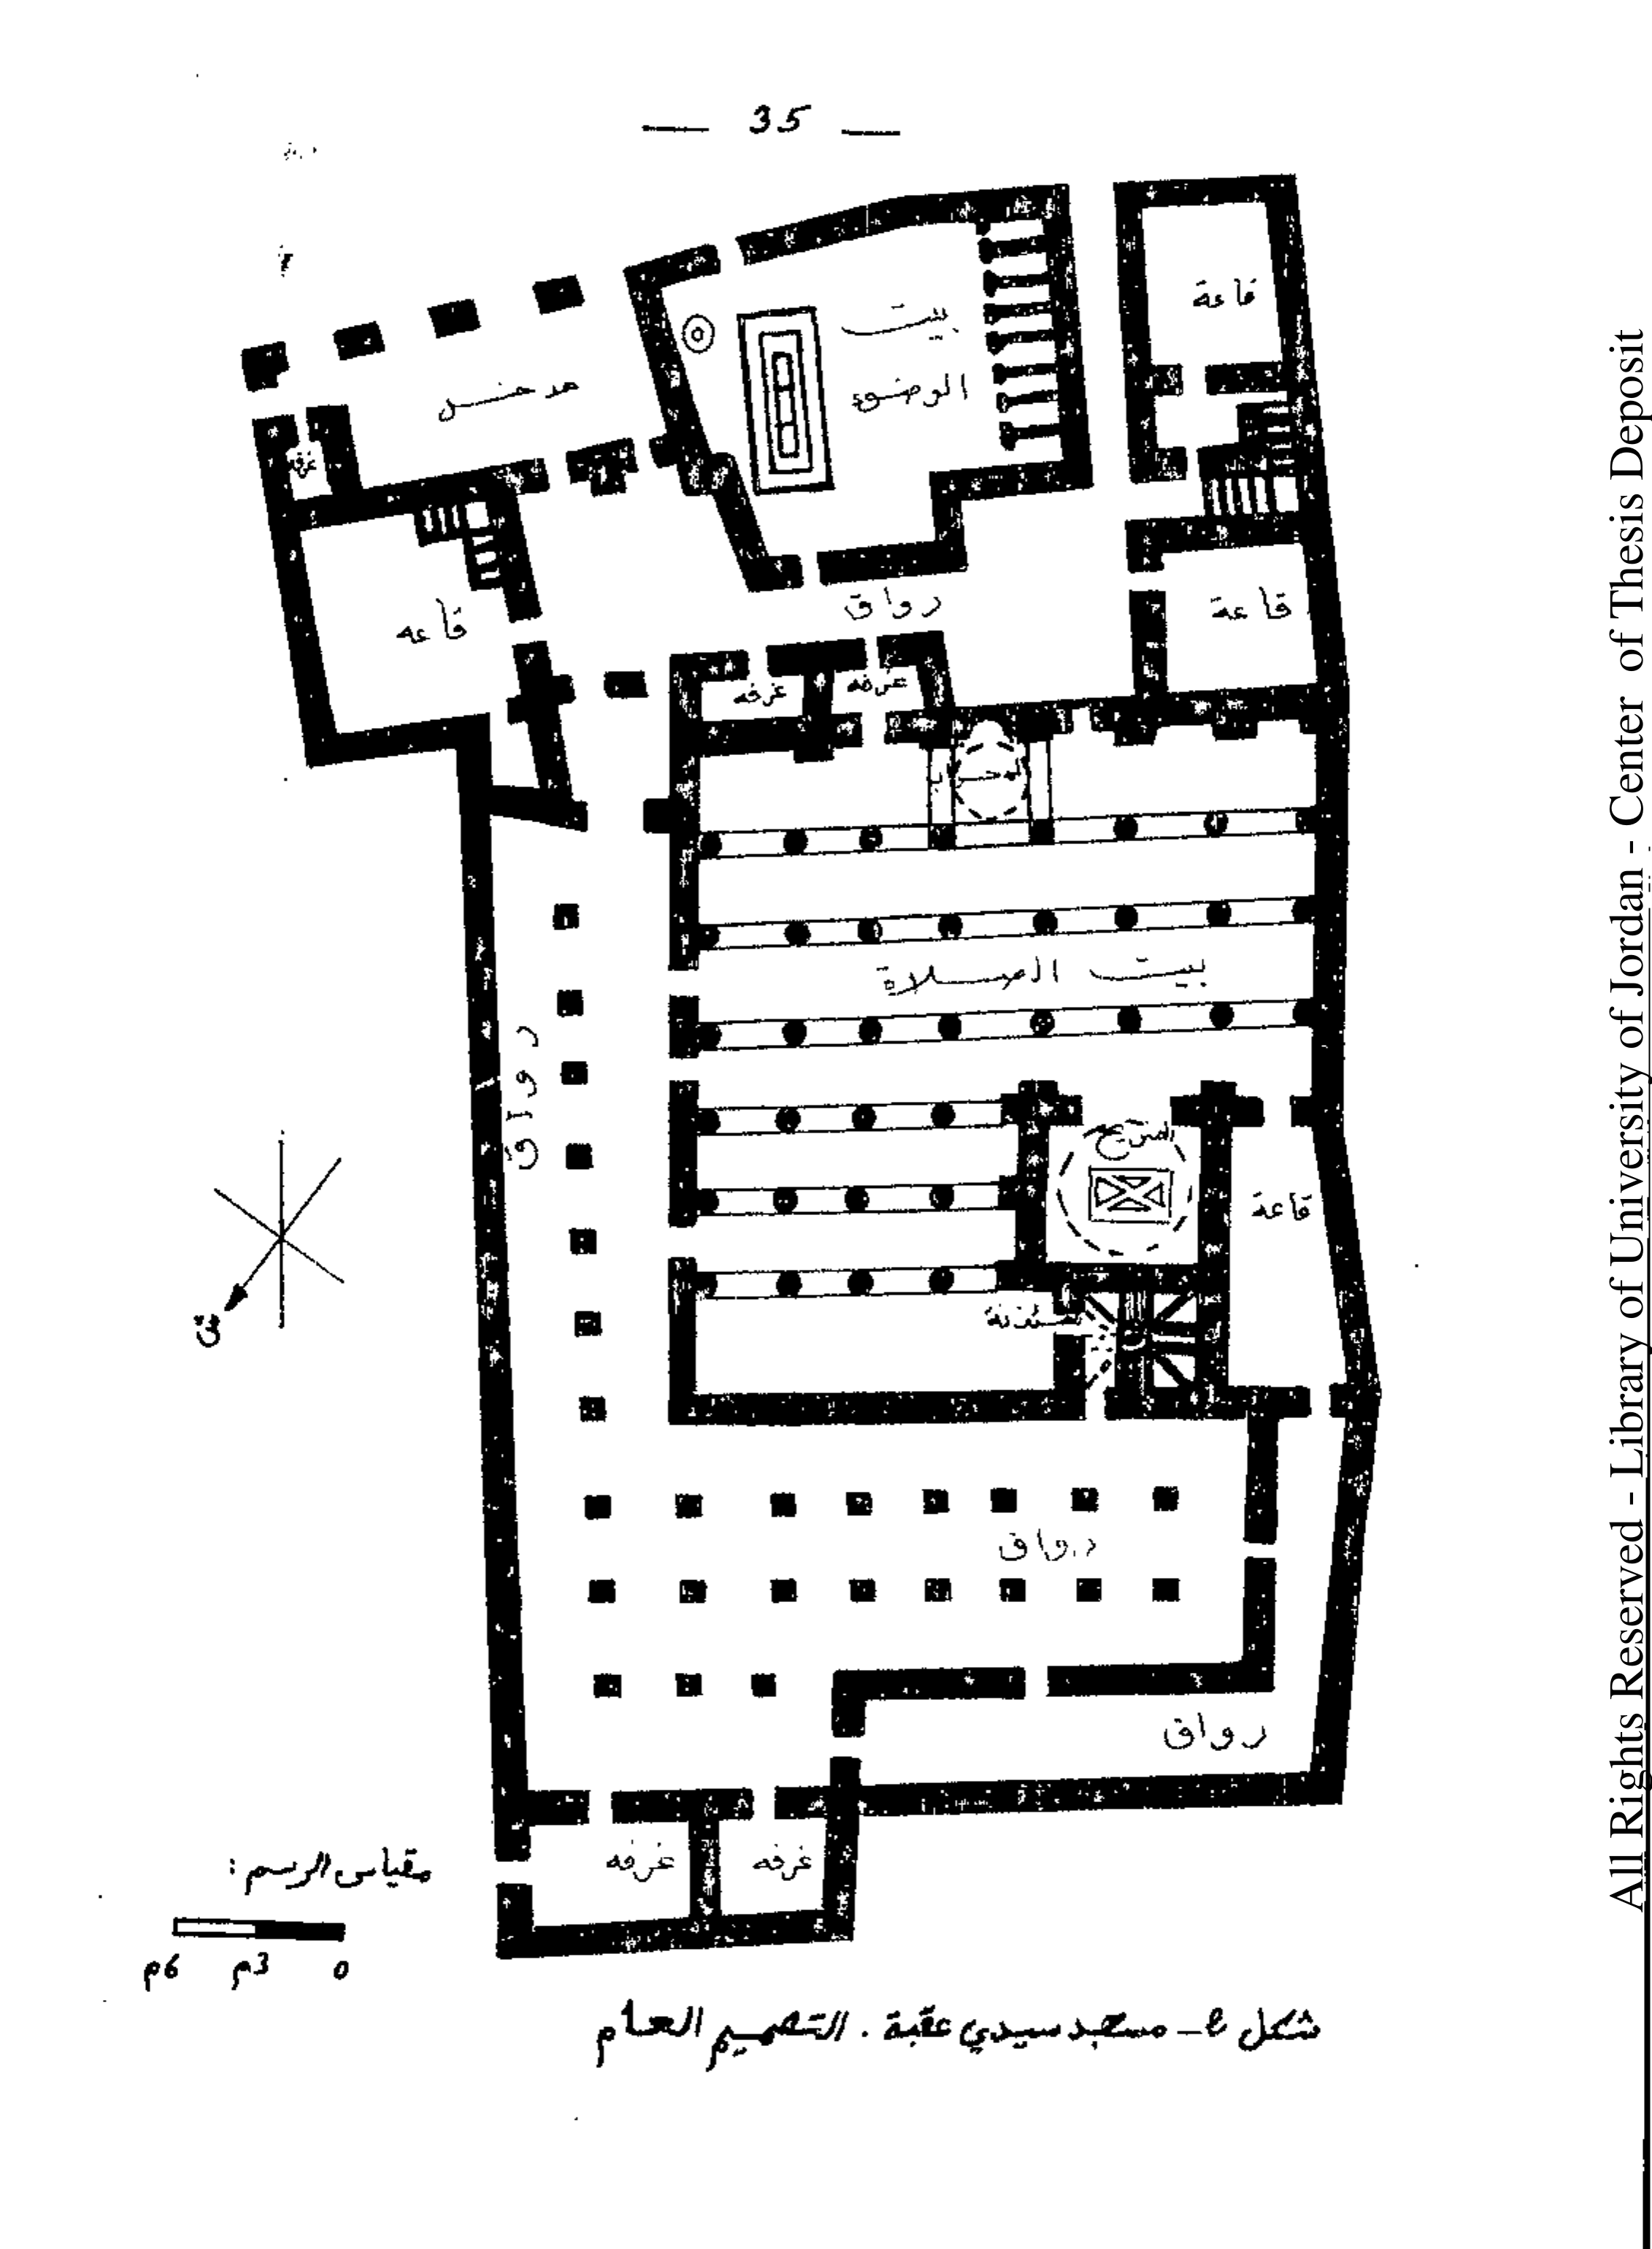 — 35 —
قاعة
بيت
الوضوء
مدخل
غرفة
قاعة
رواق
قاعه
غرفه
غرفه
المحراب
بيت الصلاة
رواق
الضريح
قاعة
المئذنة
ق
رواق
رواق
غرفه
غرفه
مقياس الرسم :
0 3م 6م
شكل 9 - مسجد سيدي عقبة . التصميم العام
All Rights Reserved - Library of University of Jordan - Center of Thesis Deposit